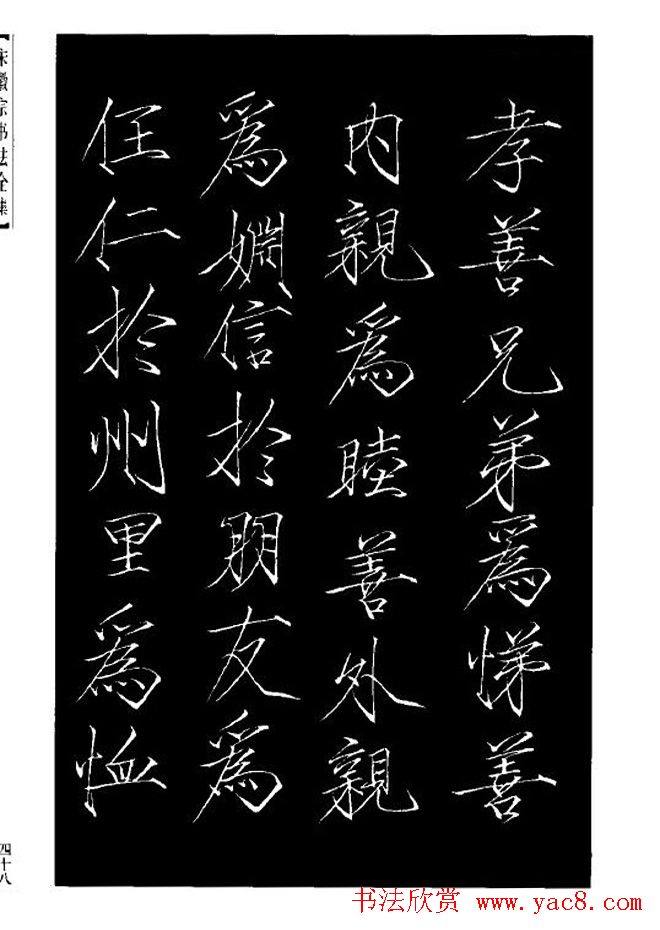 孝善兄弟爲悌善
内親爲睦善外親
爲婣信於朋友爲
任仁於州里爲恤
【宋徽宗书法全集】
四十八
书法欣赏 www.yac8.com